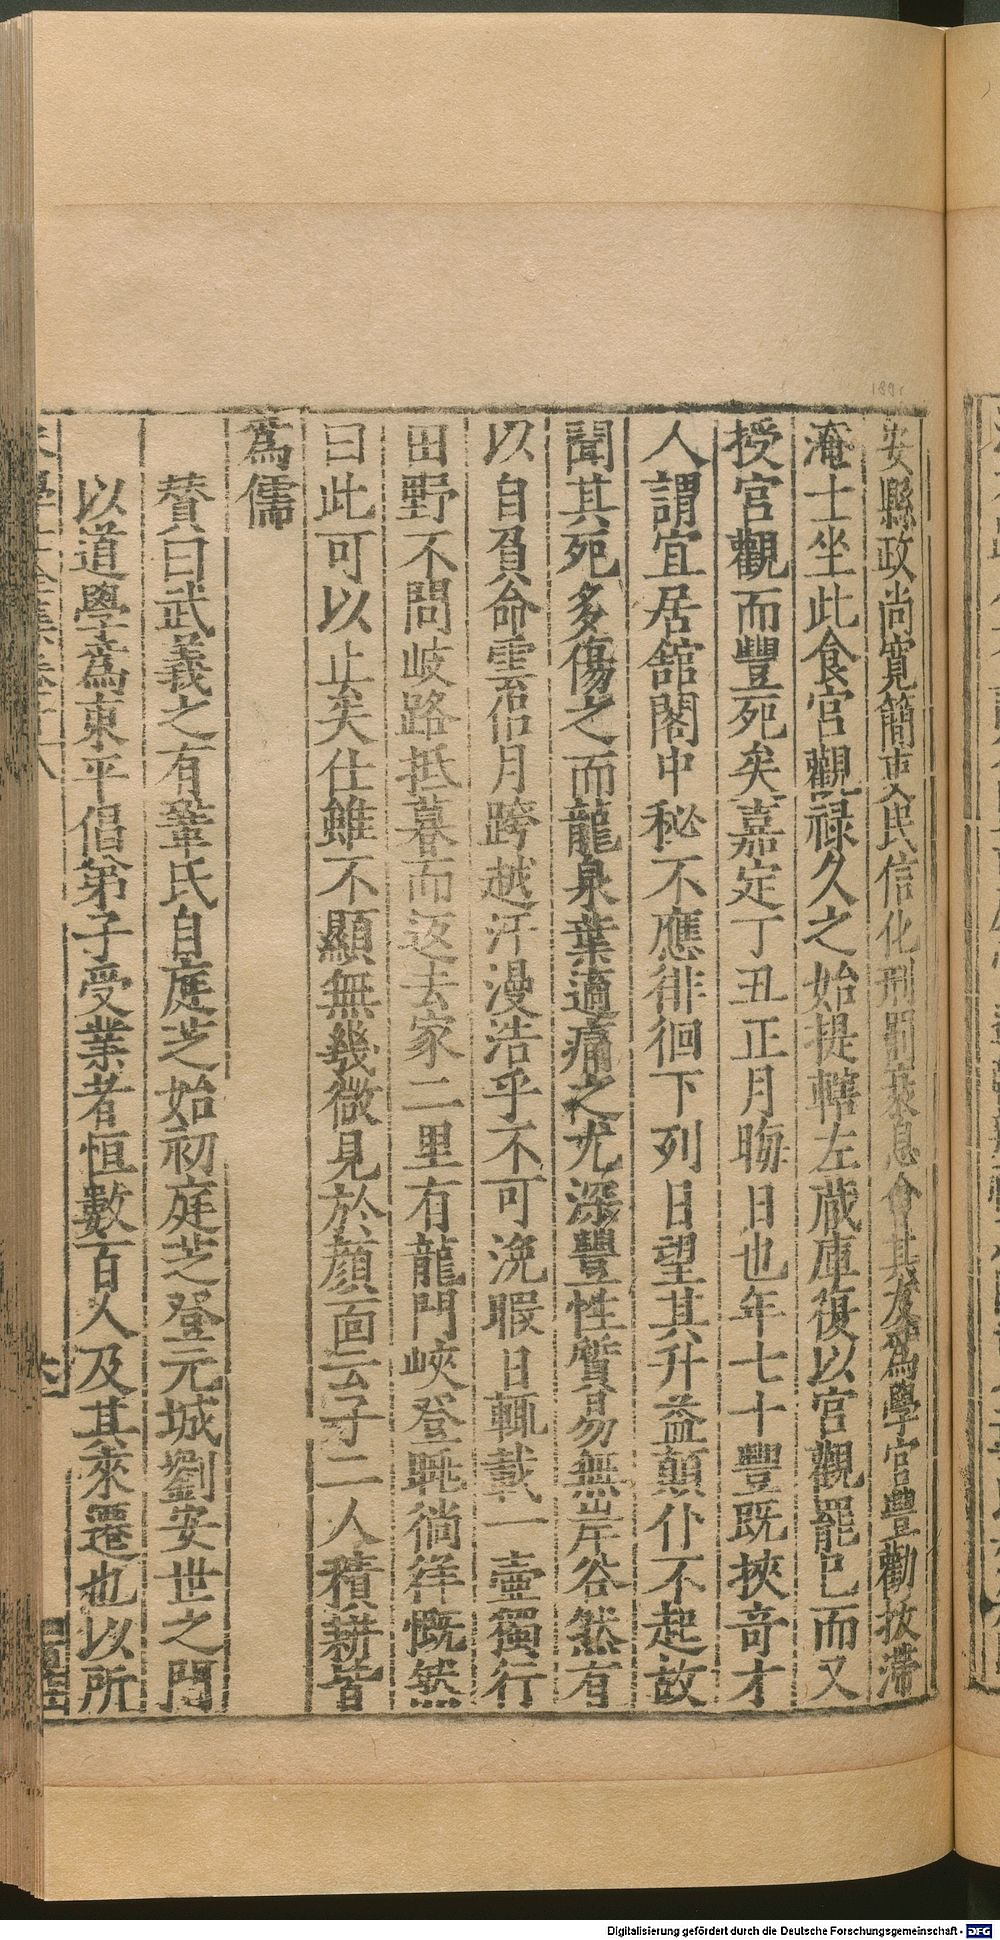 安縣政尚寛簡吏民信化刑罰衰息會其友爲學官豐勸扳滯
淹士坐此食官觀禄久之始提轄左蔵庫復以宫觀罷已而又
授宫觀而豐死矣嘉定丁丑正月晦日也年七十豐既挾奇才
人謂宜居舘閣中秘不應徘徊下列日望其升益顛仆不起故
聞其死多傷之而龍泉葉適痛之尤深豐性質易無岸谷然有
以自負命雲侣月跨越汗漫浩乎不可浼暇日輒載一壷獨行
田野不問岐路抵暮而返去家二里有龍門峽登眺徜徉慨然
曰此可以止矣仕雖不顯無幾微見於顔面云子二人積耕皆
爲儒
賛曰武義之有鞏氏自庭芝始初庭芝登元城劉安世之門
以道學爲東平倡弟子受業者恒數百人及其來遷也以所
Digitalisierung gefördert durch die Deutsche Forschungsgemeinschaft - DFG